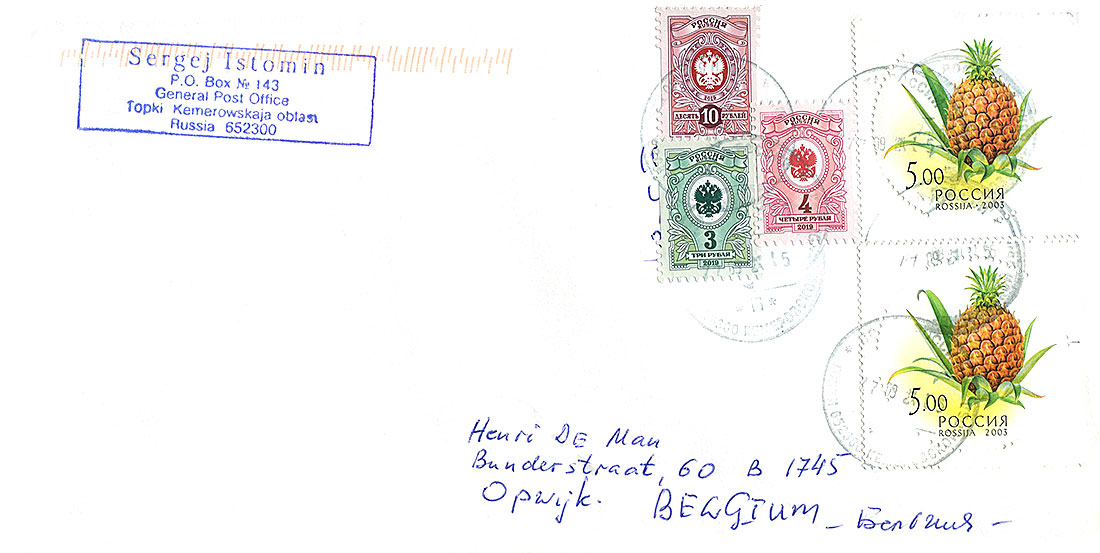 Sergej Istomin
P.O. Box № 143
General Post Office
Topki Kemerowskaja oblast
Russia 652300
РОССИЯ
RUSSIA
2019
ДЕСЯТЬ 10 РУБЛЕЙ
РОССИЯ
RUSSIA
3
ТРИ РУБЛЯ
2019
РОССИЯ
RUSSIA
4
ЧЕТЫРЕ РУБЛЯ
2019
5.00
РОССИЯ
ROSSIJA · 2003
5.00
РОССИЯ
ROSSIJA 2003
Henri DE Man
Bunderstraat, 60 B 1745
Opwijk. BELGIUM - Бельгия -